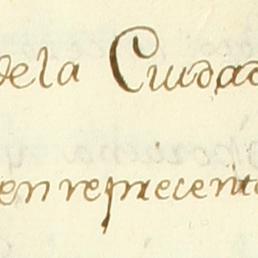 dela Ciudad
en reprecent